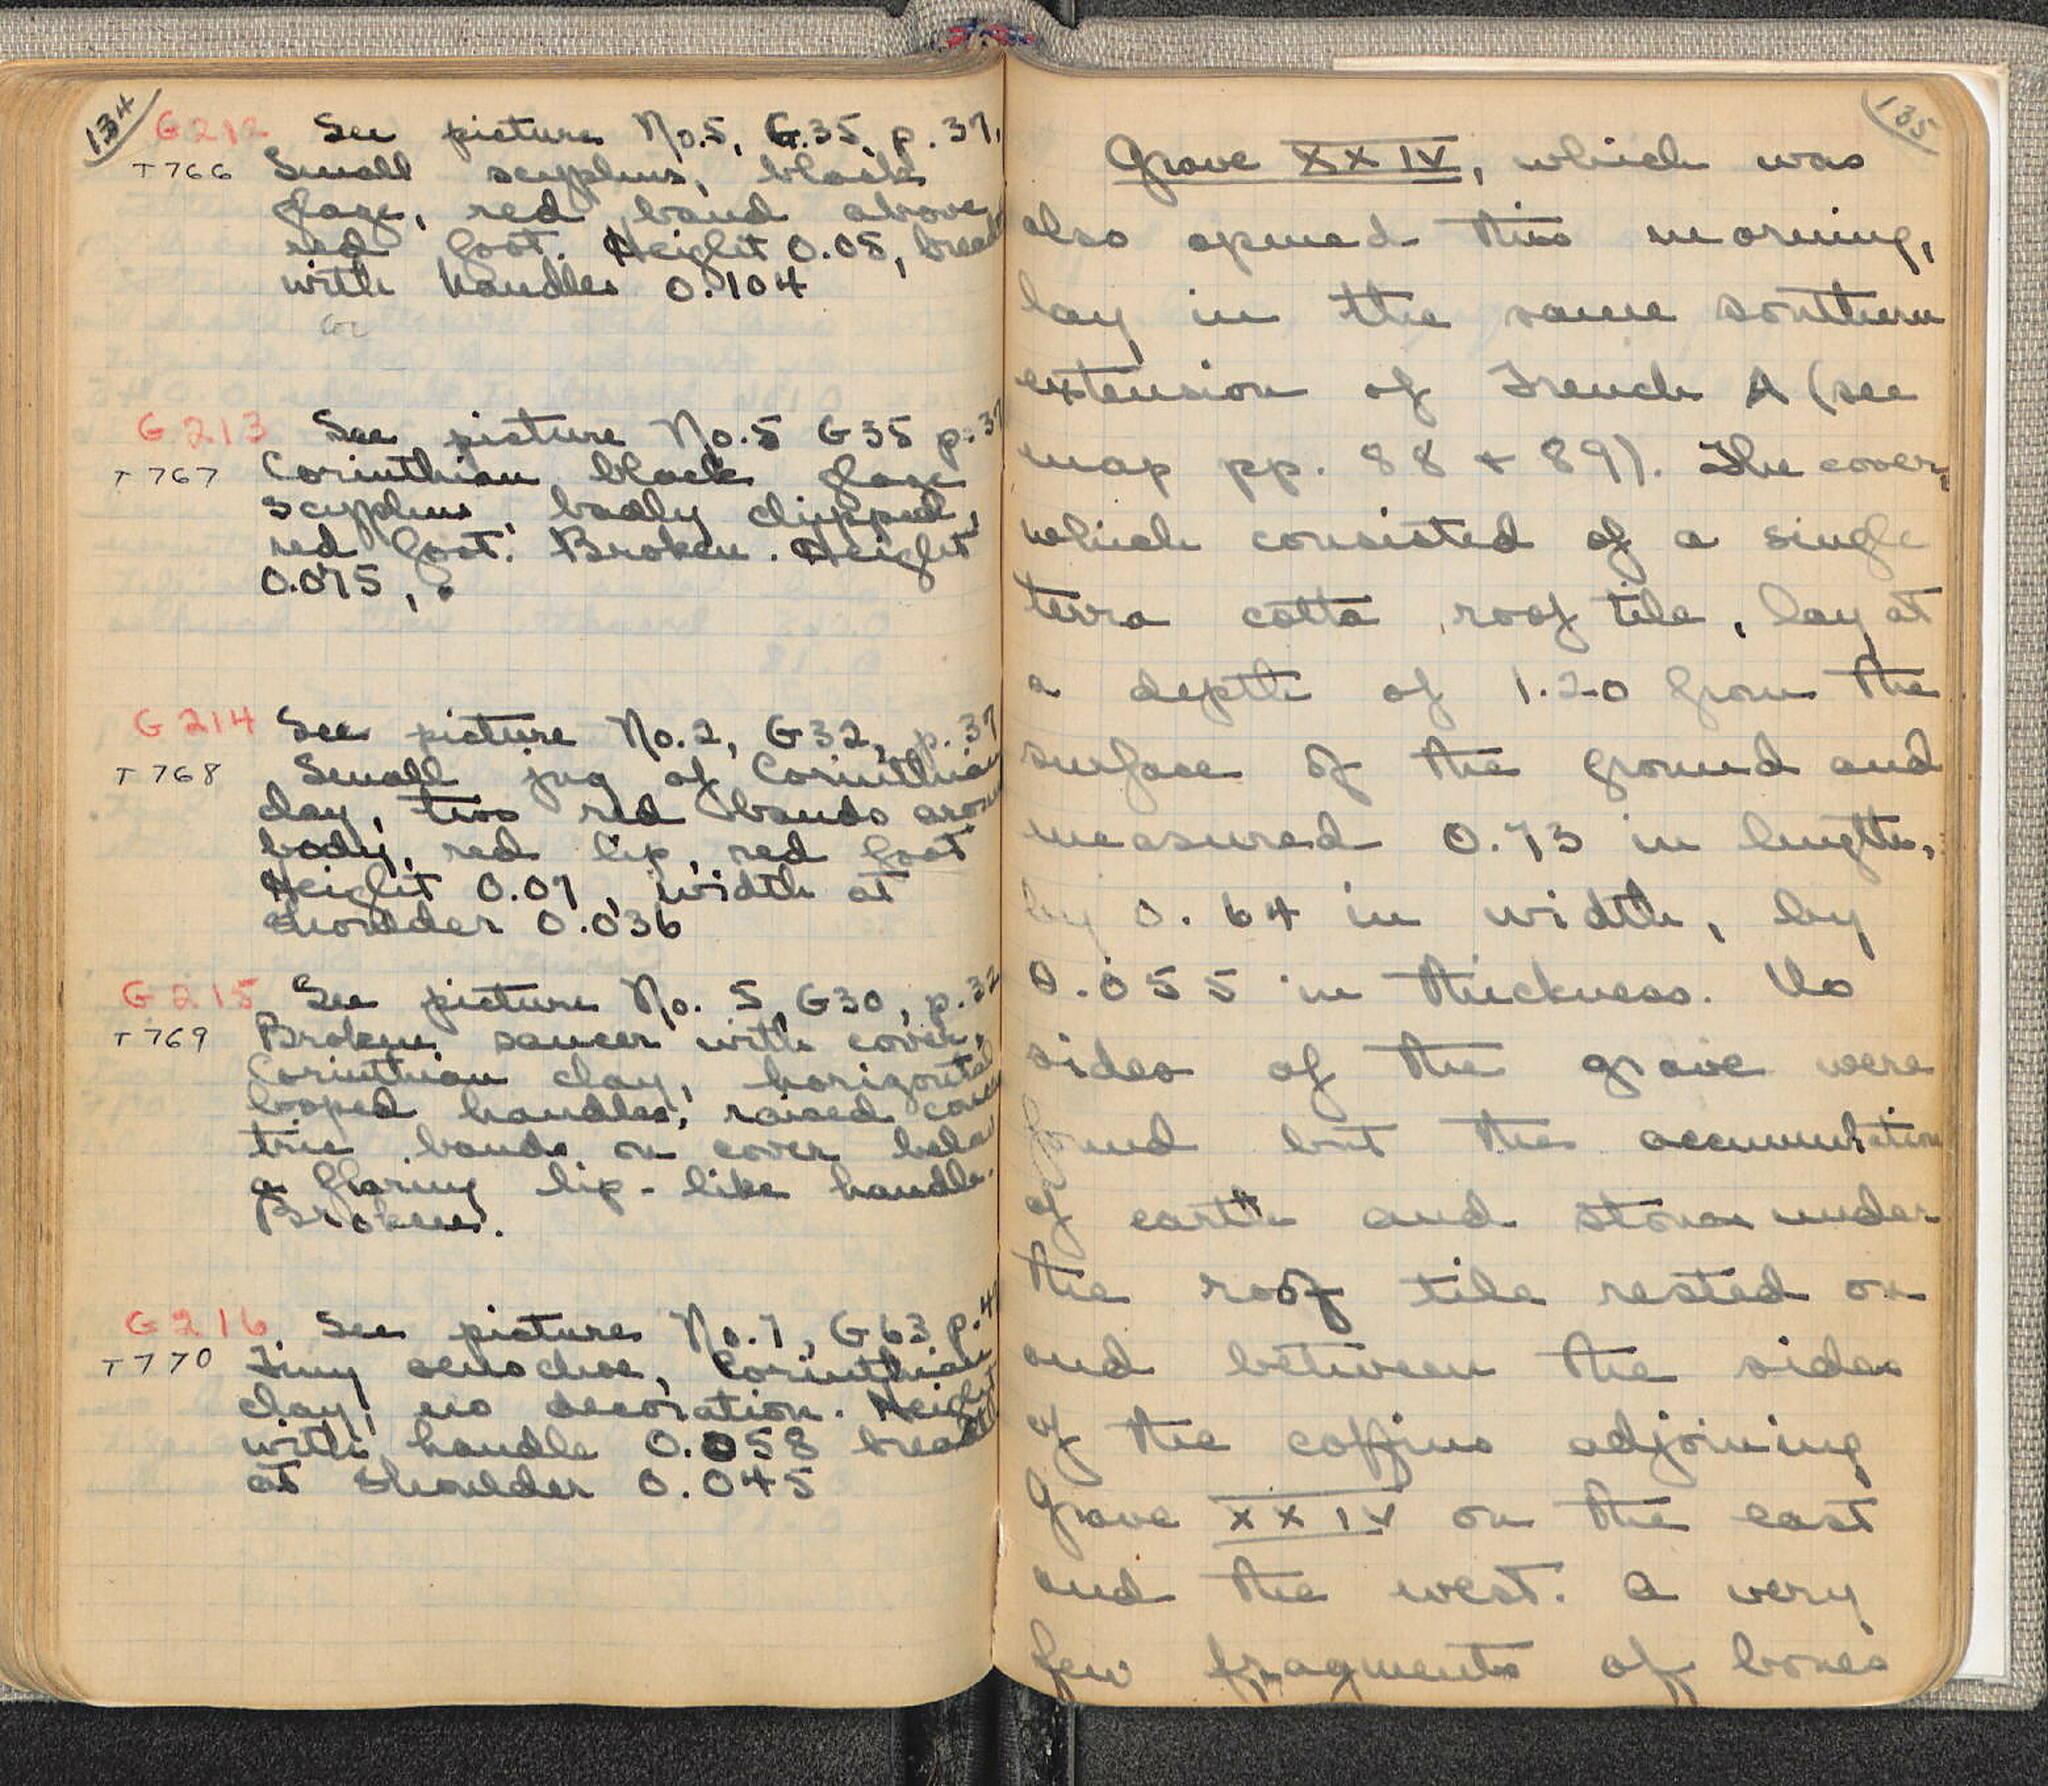 134
G212 See picture No. 5, G.35, p. 37,
T766 Small scyphus, black
glaze, red band above
red foot. Height 0.05, breadth
with handles 0.104
Cor
G213 See picture No. 5 G35 p. 37
T767 Corinthian black glaze
scyphus, badly chipped,
red foot. Broken. Height
0.075, .
G214 See picture No. 2, G32, p. 37
T768 Small jug of Corinthian
clay, two red bands around
body, red lip, red foot
Height 0.07, width at
shoulder 0.036
G215 See picture No. 5, G30, p. 32
T769 Broken saucer with cover,
Corinthian clay, horizontal
looped handles, raised concen
tric bands on cover below
a flaring lip-like handle.
Broken.
G216. See picture No. 7, G63 p. 47
T770 Tiny oenochoe, Corinthian
clay, no decoration. Height
with handle 0.058 breadth
at shoulder 0.045
135
Grave XXIV, which was
also opened this morning,
lay in the same southern
extension of Trench A (see
map pp. 88 + 89). The cover,
which consisted of a single
terra cotta roof tile, lay at
a depth of 1.20 from the
surface of the ground and
measured 0.73 in length,
by 0.64 in width, by
0.055 in thickness. No
sides of the grave were
found but the accumulation
of earth and stones under
the roof tile rested on
and between the sides
of the coffins adjoining
Grave XXIV on the east
and the west. A very
few fragments of bones